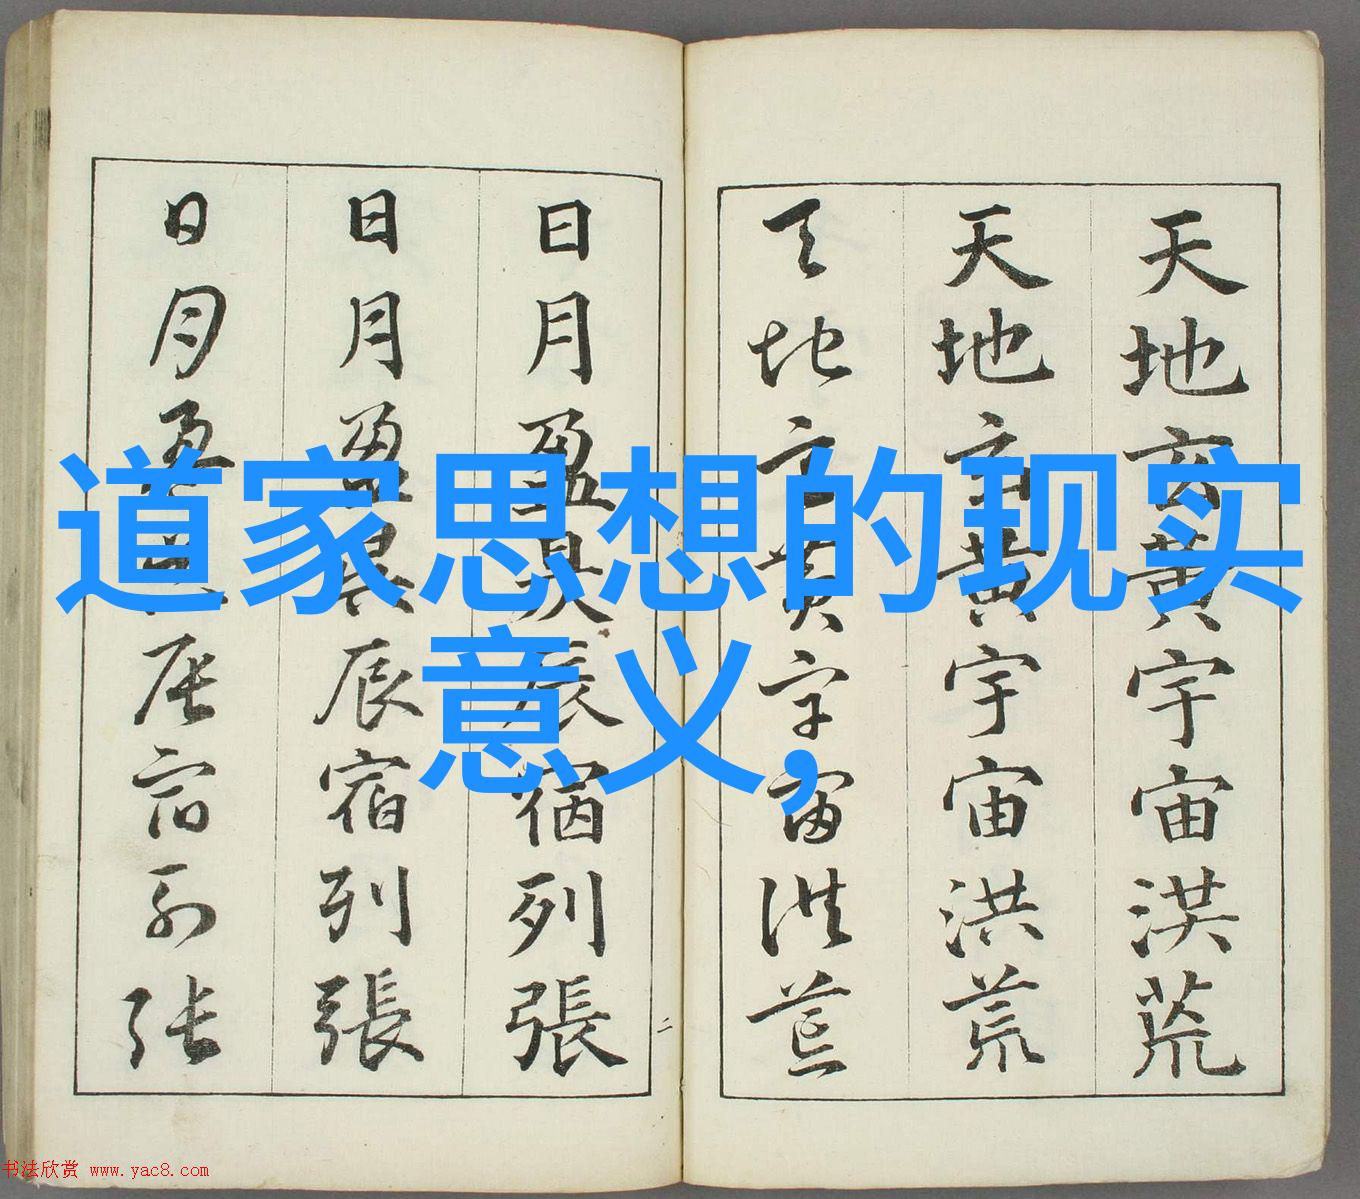 天地玄黃宇宙洪荒
天地玄黃宇宙洪荒
天地玄黃宇宙洪荒
日月盈昃辰宿列張
日月盈昃辰宿列張
日月盈昃辰宿列張
二
道家思想的现实
意义,
书法欣赏 www.yac8.com